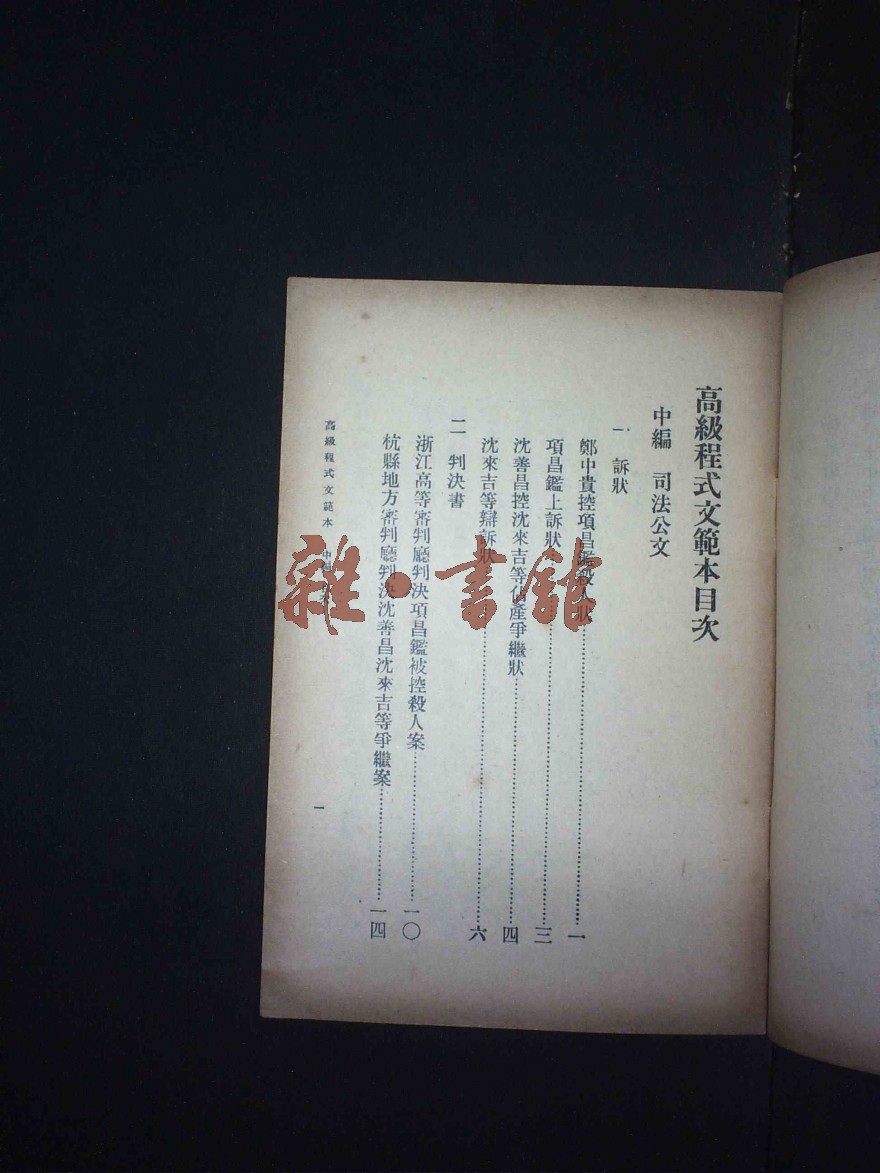 高級程式文範本目次
中編 司法公文
一 訴狀
鄭中貴控項昌鑑殺人狀……一
項昌鑑上訴狀……三
沈善昌控沈來吉等佔產爭繼狀……四
沈來吉等辯訴狀……六
二 判決書
浙江高等審判廳判決項昌鑑被控殺人案……一〇
杭縣地方審判廳判決沈善昌沈來吉等爭繼案……一四
高級程式文範本 中編
一
雜·書館